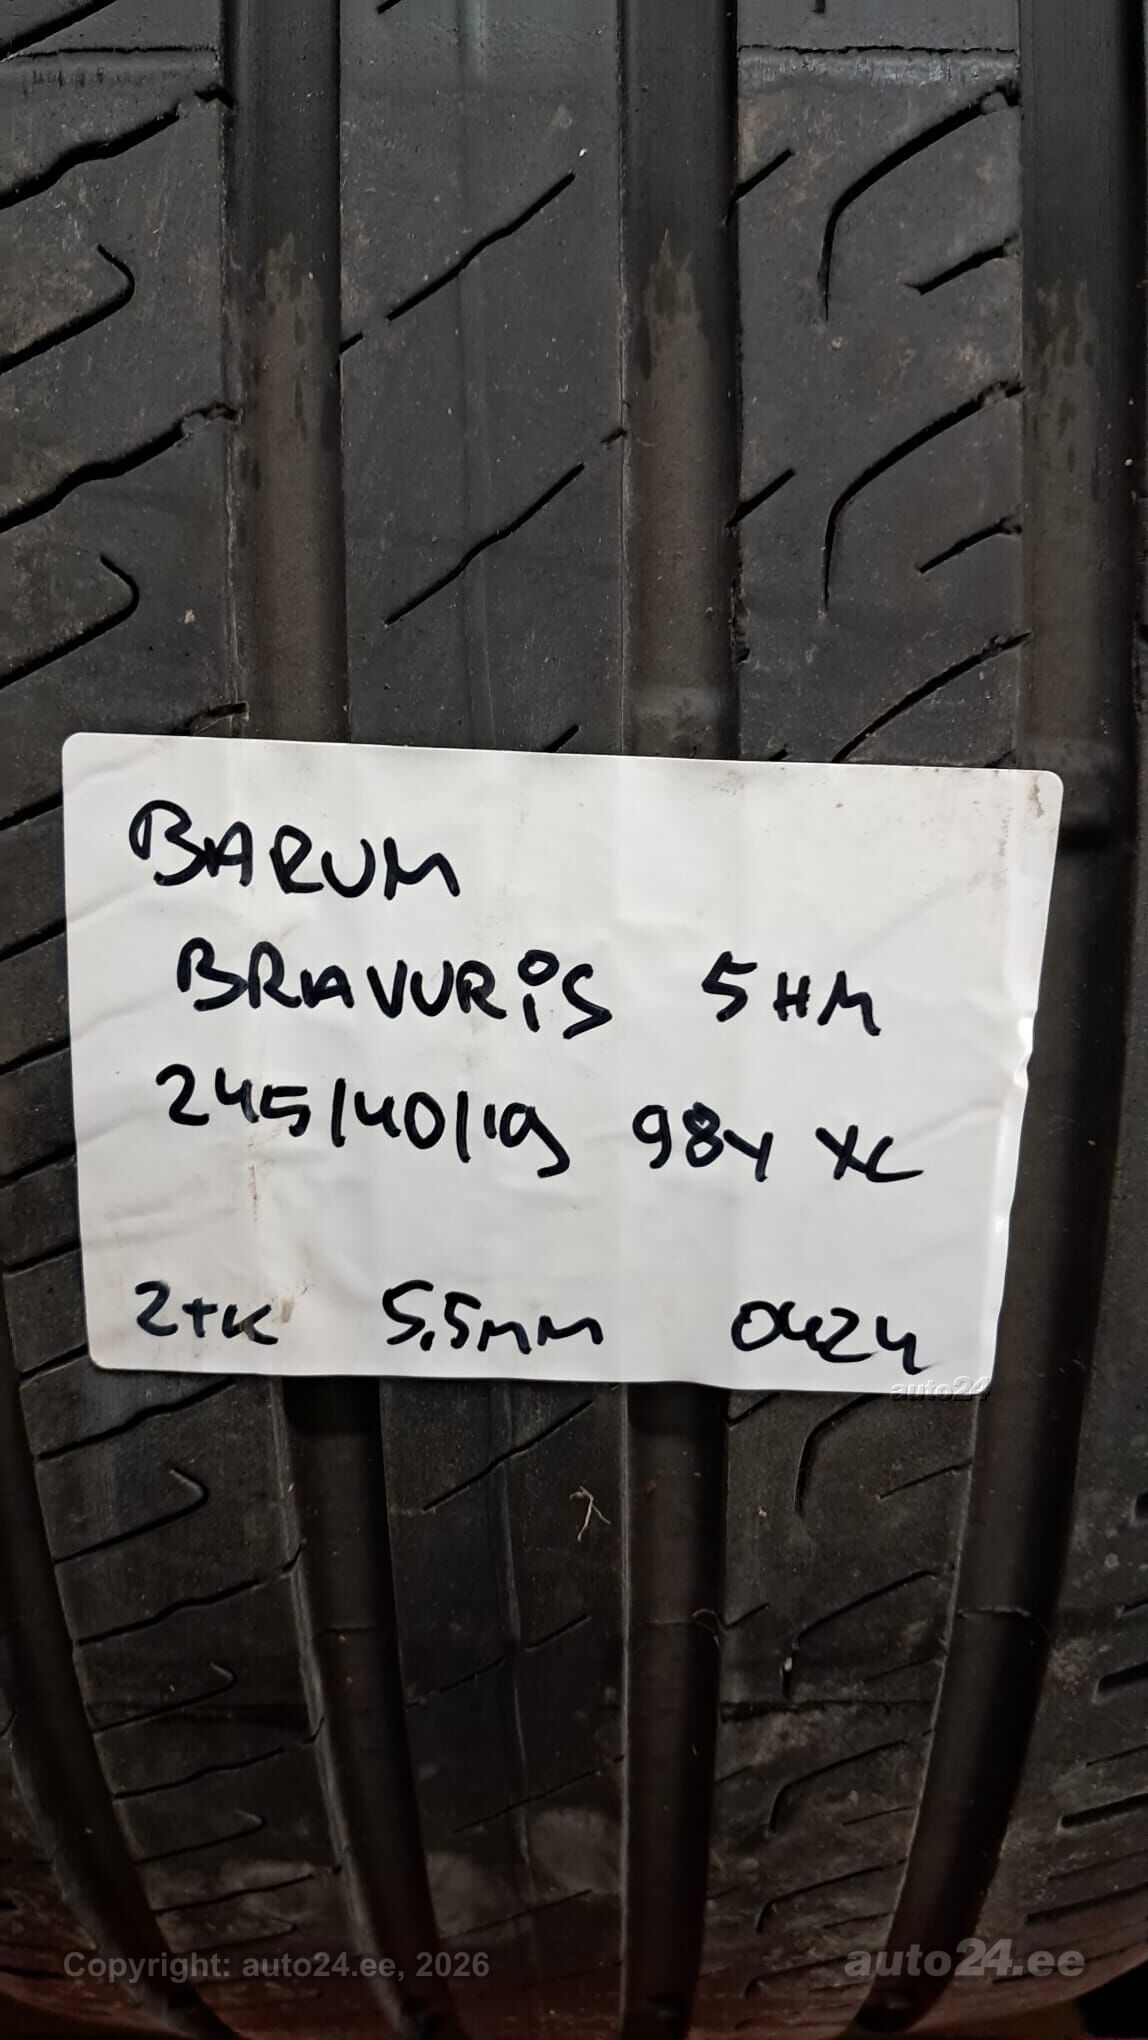 BARUM
BRAVURiS 5HM
245/40/19 98Y XL
2TK 5,5mm 0424
auto24
Copyright: auto24.ee, 2026
auto24.ee